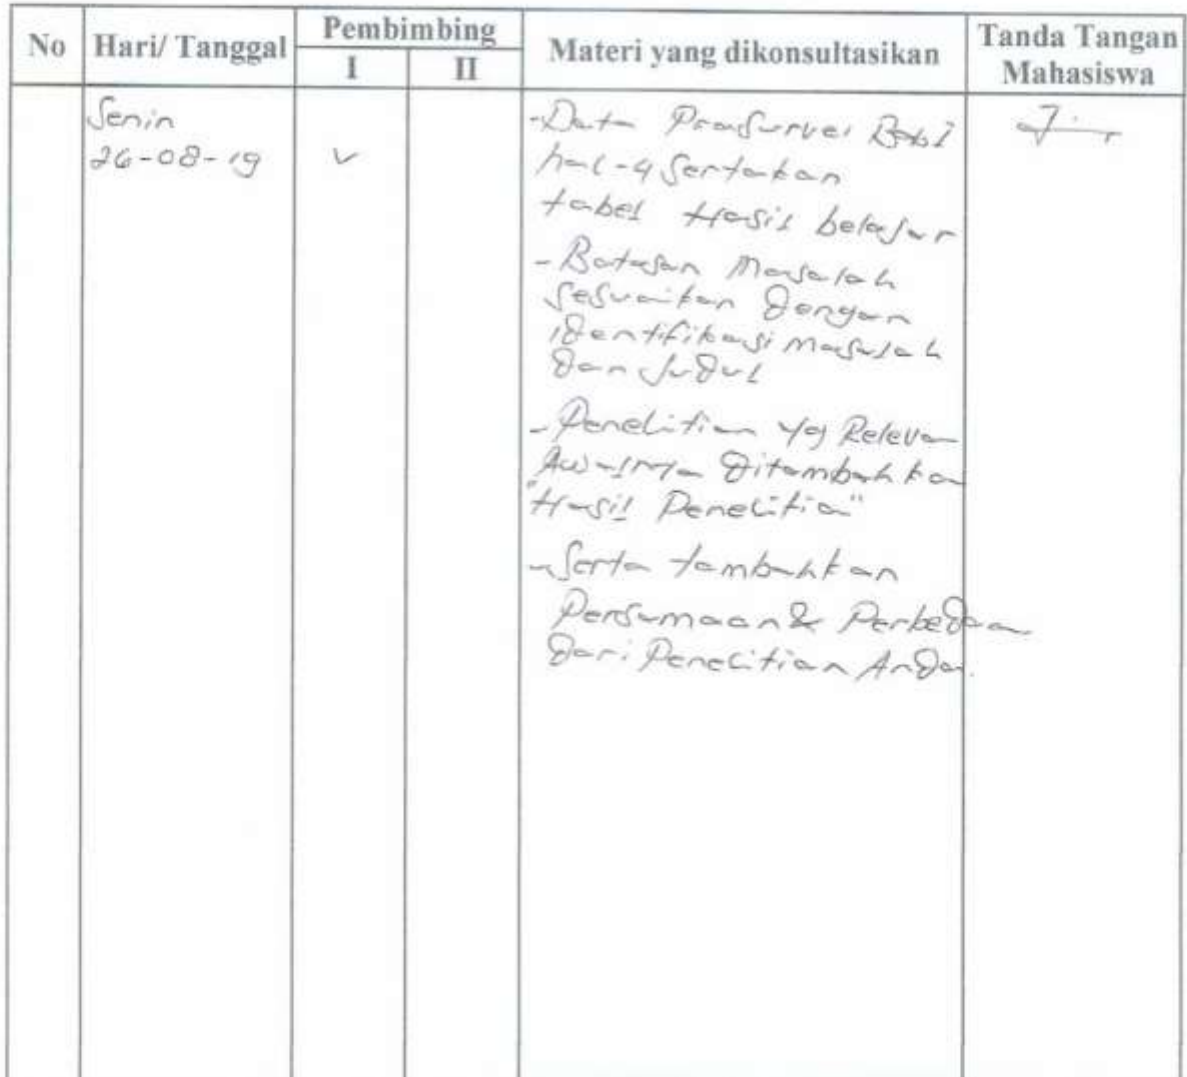 No Hari/ Tanggal Pembimbing Materi yang dikonsultasikan Tanda Tangan Mahasiswa
I II
Senin
26-08-19 v
- Data Prasurvei Bab I
hal-4 Sertakan
tabel Hasil belajar
- Batasan Masalah
Sesuaikan Dengan
iDentifikasi Masalah
Dan JuDul
- Penelitian yg Relevan
Awalnya Ditambahkan
"Hasil Penelitian"
- Serta tambahkan
Persamaan & PerbeDaan
Dari Penelitian AnDa.